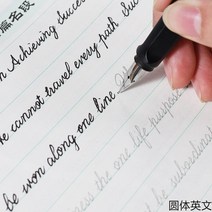 篇名段
n Achieving Succes
e cannot travel every path Suc
be won along one line
ess the one life purpose
be subordina
圆体英文